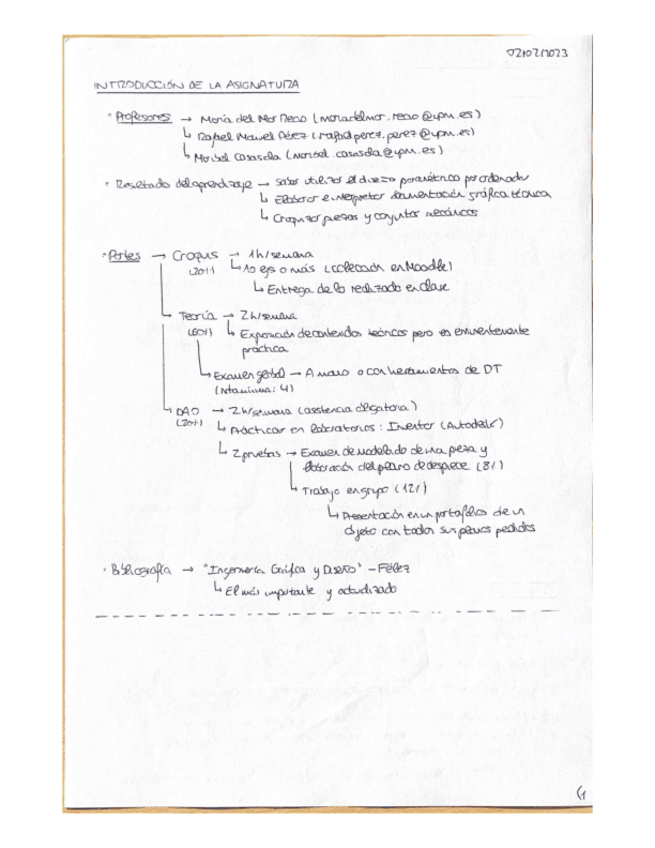 02/02/2023
INTRODUCCIÓN DE LA ASIGNATURA
· Profesores → María del Mar Recio (
↳ Rafael Manuel Pérez (rafael.perez.perez@upm.es)
↳ Marisol Casasola (marisol.casasola@upm.es)
· Resultado del aprendizaje → Saber utilizar el diseño paramétrico por ordenador
↳ Elaborar e interpretar documentación gráfica técnica
↳ Croquizar piezas y conjuntos mecánicos
· Partes → Croquis → 1h/semana
(20%) ↳ 10 ejs o más (colección en Moodle)
↳ Entrega de lo realizado en clase
↳ Teoría → 2h/semana
(60%) ↳ Exposición de contenidos teóricos pero es eminentemente
práctica
↳ Examen global → A mano o con herramientas de DT
(Nota mínima: 4)
↳ DAO → 2h/semana (asistencia obligatoria)
(20%) ↳ Prácticas en laboratorios: Inventor (Autodesk)
↳ 2 pruebas → Examen de modelado de una pieza y
elaboración del plano de despiece (8%)
↳ Trabajo en grupo (12%)
↳ Presentación en un portafolios de un
objeto con todos sus planos pedidos
· Bibliografía → "Ingeniería Gráfica y Diseño" - Félez
↳ El más importante y actualizado